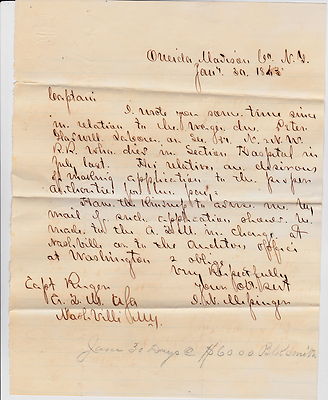 Oneida, Madison Co. N.Y.
Jany. 30. 1865
Captain
I wrote you some time since
in relation to the wages due Peter
Glasswell Laborer on Sec. N. & N.W.
R.R. who died in Section Hospital in
July last. His relatives are desirous
of making application to the proper
authorities for his pay.
Have the kindness to advise me by
mail if such application should be
made to the A.Q.M. in charge at
Nashville or to the Auditors office
at Washington & oblige
Very Respectfully
Your Obt Servt
I. N. Messinger
Capt
A. Q. M. USA
Nashville
June 30 Days @ $60.00 Blksmith